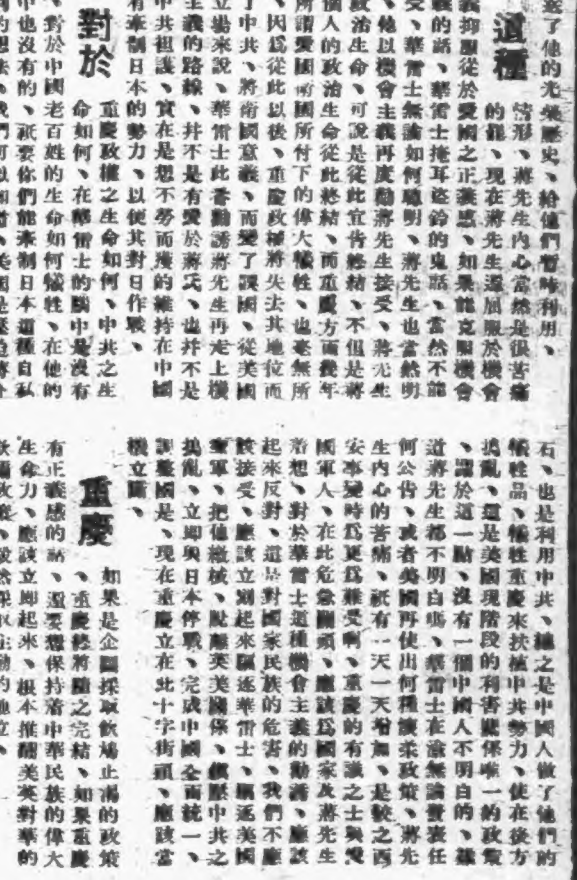 了他的光榮歷史、給他們暫時利用、
這種
情形、蔣先生內心當然是很苦痛
的罷、現在蔣先生還屈服於機會
義抑服從於愛國之正義感、如果能克服機會
義的話、華雷士掩耳盜鈴的鬼話、當然不能
受、華雷士無論如何聰明、蔣先生也當然明
、他以機會主義再度勸蔣先生接受、蔣先生
政治生命、可說是從此宣告終結、不但是蔣
個人的政治生命從此終結、而重慶方面幾年
所謂愛國衛國所付下的偉大犧牲、也毫無所
、因爲從此以後、重慶政權將失去其地位而
了中共、將衛國意義、而變了誤國、從美國
立場來說、華雷士此番勸誘蔣先生再走上機
主義的路線、幷不是有愛於蔣氏、也幷不是
中共袒護、實在是想不勞而獲的維持在中國
有牽制日本的勢力、以使其對日作戰、
對於
重慶政權之生命如何、中共之生
命如何、在華雷士的腦中是沒有
、對於中國老百姓的生命如何犧牲、在他的
中也沒有的、祇要你們能牽制日本這種自私
石、也是利用中共、總之是中國人做了他們的
犧牲品、犧牲重慶來扶植中共勢力、使在後方
搗亂、這是美國現階段的利害關係唯一的政策
、關於這一點、沒有一個中國人不明白的、難
道蔣先生都不明白嗎、華雷士在渝無論發表任
何公告、或者美國再使出何種懷柔政策、蔣先
生內心的苦痛、祇有一天一天增加、是較之西
安事變時爲更爲難受啊、重慶的有識之士與愛
國軍人、在此危急關頭、應該爲國家及蔣先生
着想、對於華雷士這種機會主義的勸誘、應該
起來反對、這是對國家民族的危害、我們不應
該接受、應該立刻起來驅逐華雷士、驅逐美國
空軍、把他繳械、脫離英美關係、鎮壓中共之
搗亂、立即與日本停戰、完成中國全面統一、
調整國是、現在重慶立在此十字街頭、應該當
機立斷、
重慶
如果是企圖採取飲鴆止渴的政策
、重慶終將隨之完結、如果重慶
有正義感的話、還要想保持着中華民族的偉大
生命力、應該立即起來、根本推翻美英對華的